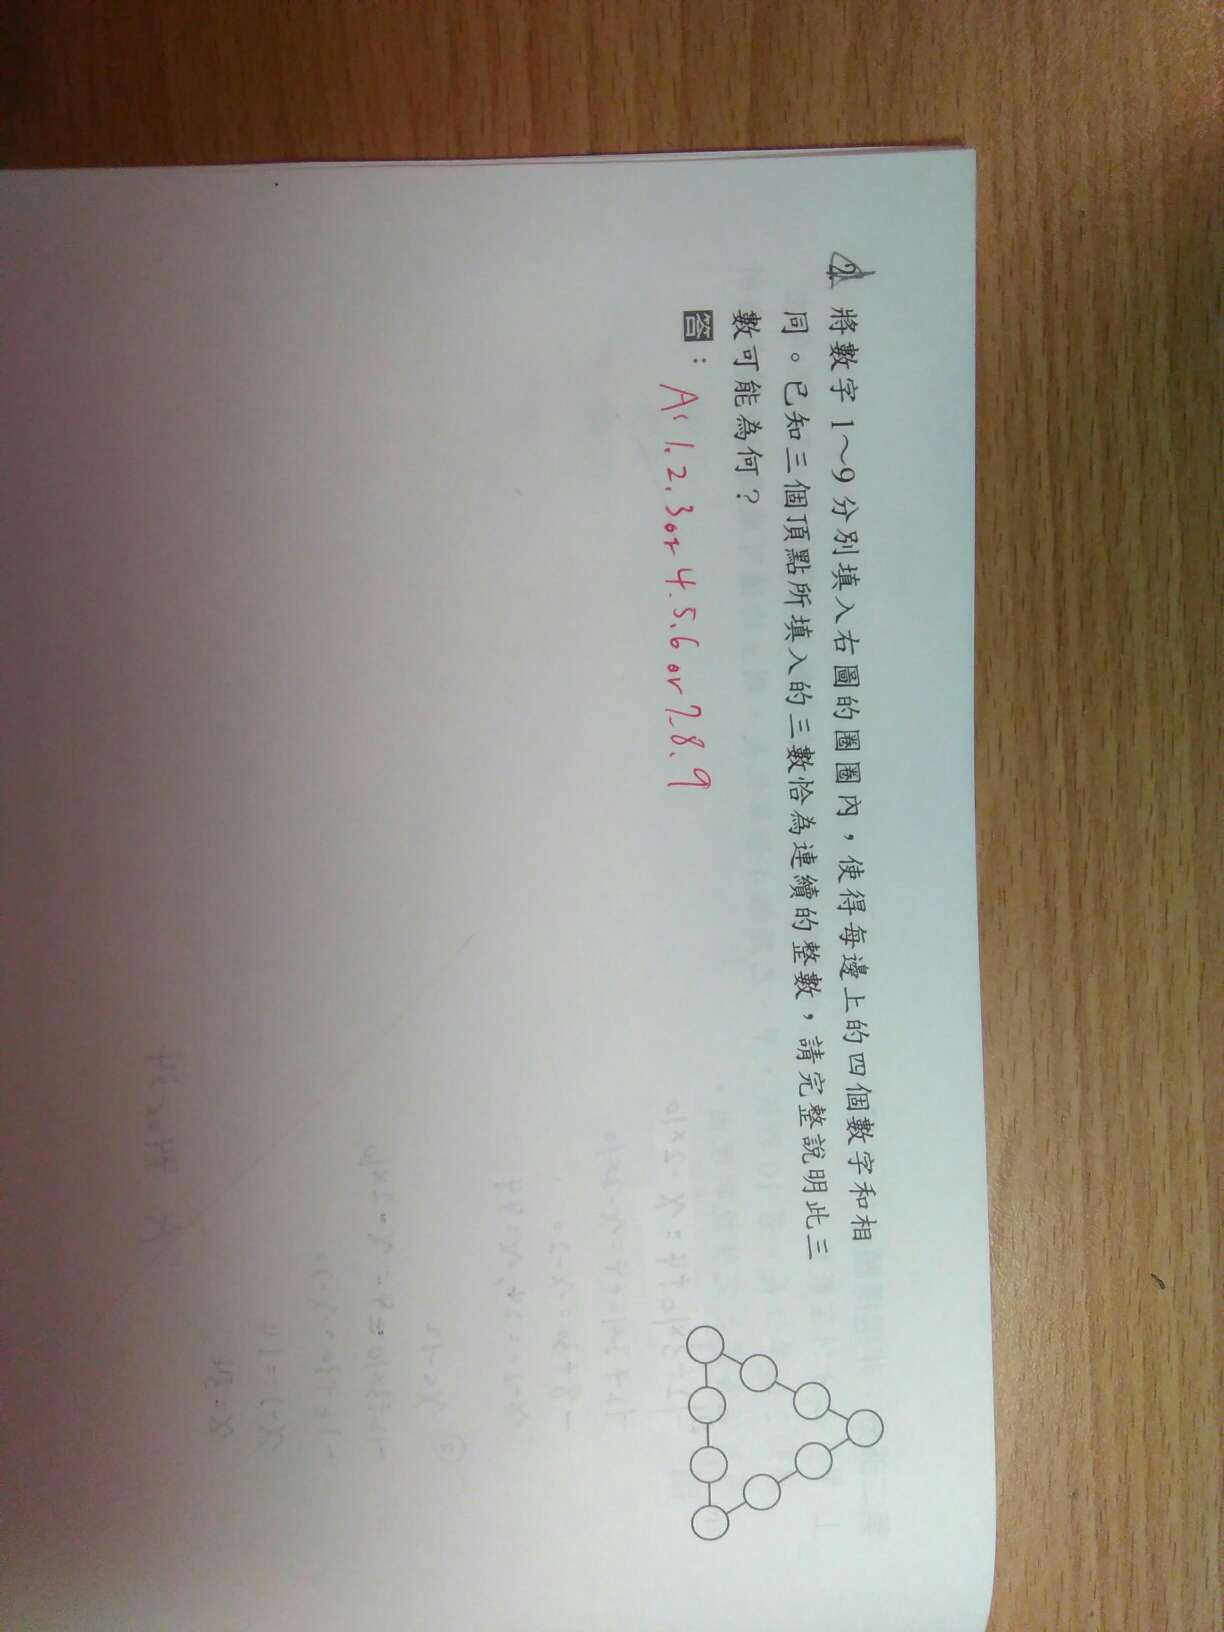 2. 將數字 1～9 分別填入右圖的圈圈內，使得每邊上的四個數字和相
同。已知三個頂點所填入的三數恰為連續的整數，請完整說明此三
數可能為何？
答：A: 1. 2. 3 or 4. 5. 6 or 7. 8. 9